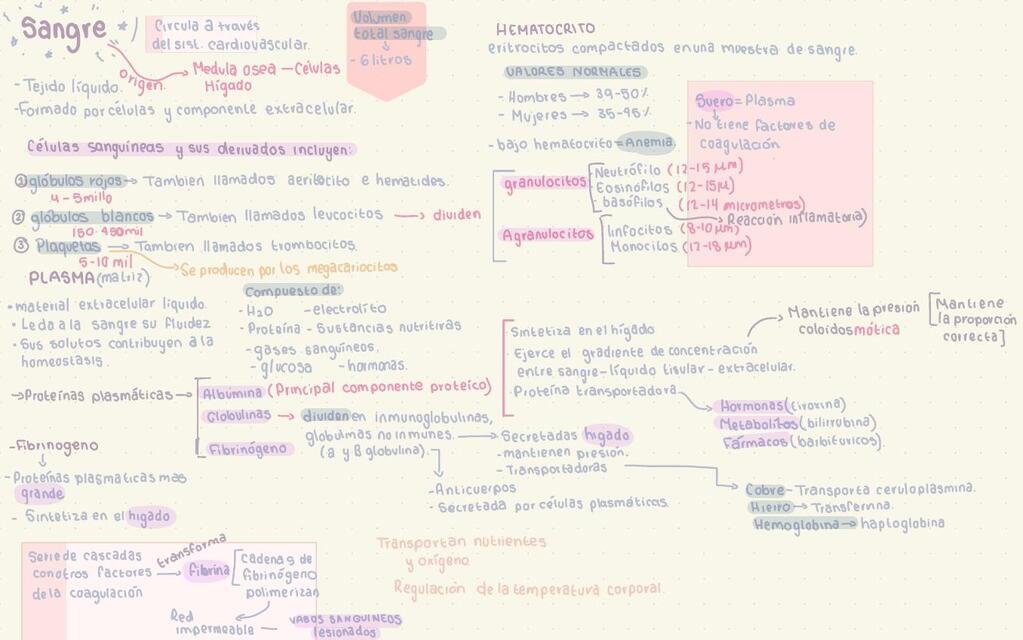 Sangre
Circula a través
del sist. cardiovascular.
Volumen
total sangre
- 6 litros
origen.
Medula osea — Células
Hígado
- Tejido líquido.
- Formado por células y componente extracelular.
Células sanguíneas y sus derivados incluyen:
① glóbulos rojos → Tambien llamados aeritocito e hematides.
4 - 5 millo
② glóbulos blancos → Tambien llamados leucocitos → dividen
150 - 450 mil
③ Plaquetas → Tambien llamados trombocitos.
5-10 mil
Se producen por los megacariocitos
HEMATOCRITO
eritrocitos compactados en una muestra de sangre.
VALORES NORMALES
- Hombres → 39-50%
- Mujeres → 35-45%
- bajo hematocrito = Anemia
Suero = Plasma
- No tiene factores de
coagulación
granulocitos
Neutrófilo (12-15 μm)
Eosinófilos (12-15μ)
basófilos (12-14 micrometros)
Reacción inflamatoria)
Agranulocitos
linfocitos (8-10μm)
Monocitos (12-18 μm)
PLASMA (matriz)
• material extracelular líquido.
• Le da a la sangre su fluidez
• Sus solutos contribuyen a la
homeostasis.
Compuesto de:
- H2O - electrolito
- Proteína - Sustancias nutritivas
- gases sanguíneos.
- glucosa - hormonas.
→ Proteínas plasmáticas →
Albúmina (Principal componente proteico)
Globulinas → dividen en inmunoglobulinas,
globulinas no inmunes.
(α y β globulina).
Fibrinógeno
Sintetiza en el hígado
Ejerce el gradiente de concentración
entre sangre - líquido tisular - extracelular.
Proteína transportadora
Mantiene la presión
coloidosmótica
[Mantiene
la proporción
correcta]
Hormonas (tiroxina)
Metabolitos (bilirrubina)
Fármacos (barbitúricos).
Secretadas hígado
- mantienen presión.
- Transportadoras
- Anticuerpos
- Secretada por células plasmáticas.
Cobre - Transporta ceruloplasmina.
Hierro → Transferrina.
Hemoglobina → haptoglobina
- Fibrinogeno
- Proteínas plasmáticas mas
grande
- Sintetiza en el hígado
Serie de cascadas
con otros factores
de la coagulación
transforma
fibrina
Cadenas de
fibrinógeno
polimerizan
Red
impermeable —
VASOS SANGUINEOS
lesionados
Transportan nutrientes
y oxígeno
Regulación de la temperatura corporal.